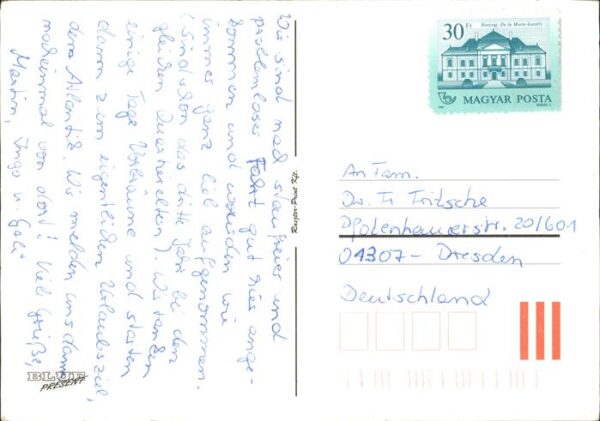 Wir sind nach staufreier und
problemloser Fahrt gut hier ange-
kommen und wurden wie
immer ganz lieb aufgenommen.
( Sind schon das dritte Jahr bei den
gleichen Quartiersleuten ). Wir tanken
einige Tage Urlaubsbräune und starten
dann zum eigentlichen Urlaubsziel,
dem Atlantik. Wir melden uns dann
nocheinmal von dort! Viele Grüße,
Martin, Ingo u. Gabi
Reuper-Print Kft.
BLUE
PRESENT
30 Ft
Nagytétény, De la Motte-kastély
MAGYAR POSTA
An Fam.
Dr. Fr Fritzsche
Pfotenhauerstr. 20/601
01307 - Dresden
Deutschland